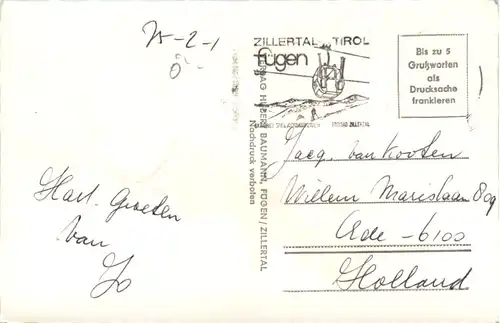 ZILLERTAL - TIROL
Fügen
Bis zu 5
Grußworten
als
Drucksache
frankieren
VERLAG HUBERT BAUMANN, FÜGEN / ZILLERTAL
Nachdruck verboten
Hart. Groeten
van
Jo
Jacq. van Kooten
Willem Marislaan 809
Ede - 6100
Holland